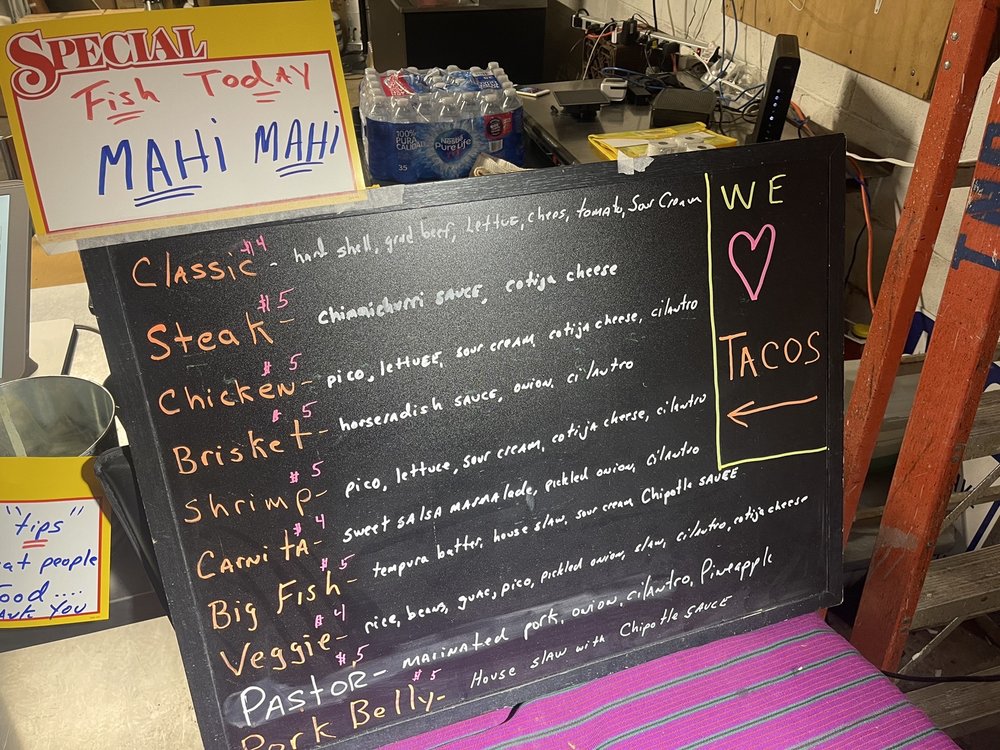 SPECIAL
Fish Today
MAHi MAHi
100%
PURA
CALIDAD
Nestlé
Pure Life
35
Classic $4 - hard shell, grnd beef, LETTUCE, chees, tomato, Sour Cream
Steak $5 - chimmichurri SAUCE, cotija cheese
Chicken $5 - pico, lettuce, sour cream, cotija cheese, cilantro
Brisket $5 - horseradish sauce, onion, cilantro
Shrimp $5 - pico, lettuce, sour cream, cotija cheese, cilantro
CARNiTA $4 - sweet SALSA MARMAlade, pickled onion, cilantro
Big Fish $5 - tempura batter, house slaw, sour cream Chipotle SAUCE
Veggie $4 - rice, beans, guac, pico, pickled onion, slaw, cilantro, cotija cheese
PASTOR $5 - MARINATED pork, onion, cilantro, Pineapple
Pork Belly $5 - House slaw with Chipotle SAUCE
WE
TACOS
"tips"
at people
ood....
YOU